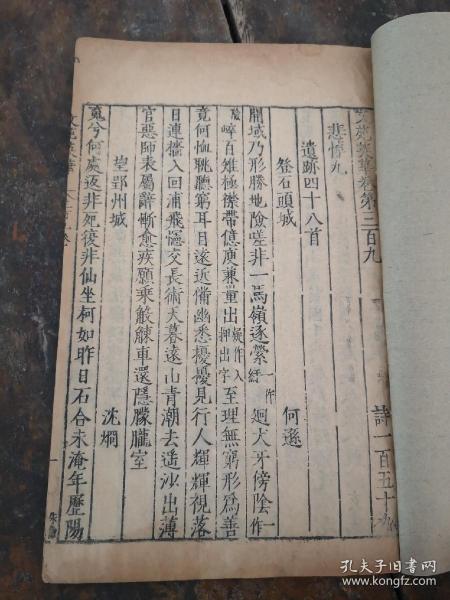 文苑英華卷第三百九
詩一百五十九
悲悼九
遺跡四十八首
登石頭城
何遜
關城乃形勝地險嗟非一馬嶺逐縈紆一作
迴犬牙傍陰一作
崪百雉極襟帶億庾兼量出
至理無窮形爲善
竟何恤眺聽窮耳目遠近備幽悉擾擾見行人輝輝視落
日連檣入回浦飛蓋交長術天暮遠山青潮去遥沙出薄
官恧師表屬辭慚愈疾願乘觳觫車還隱朦朧室
望郢州城
沈烱
魂兮何處返非死復非仙坐柯如昨日石合未淹年歷陽
孔夫子旧书网
www.kongfz.com